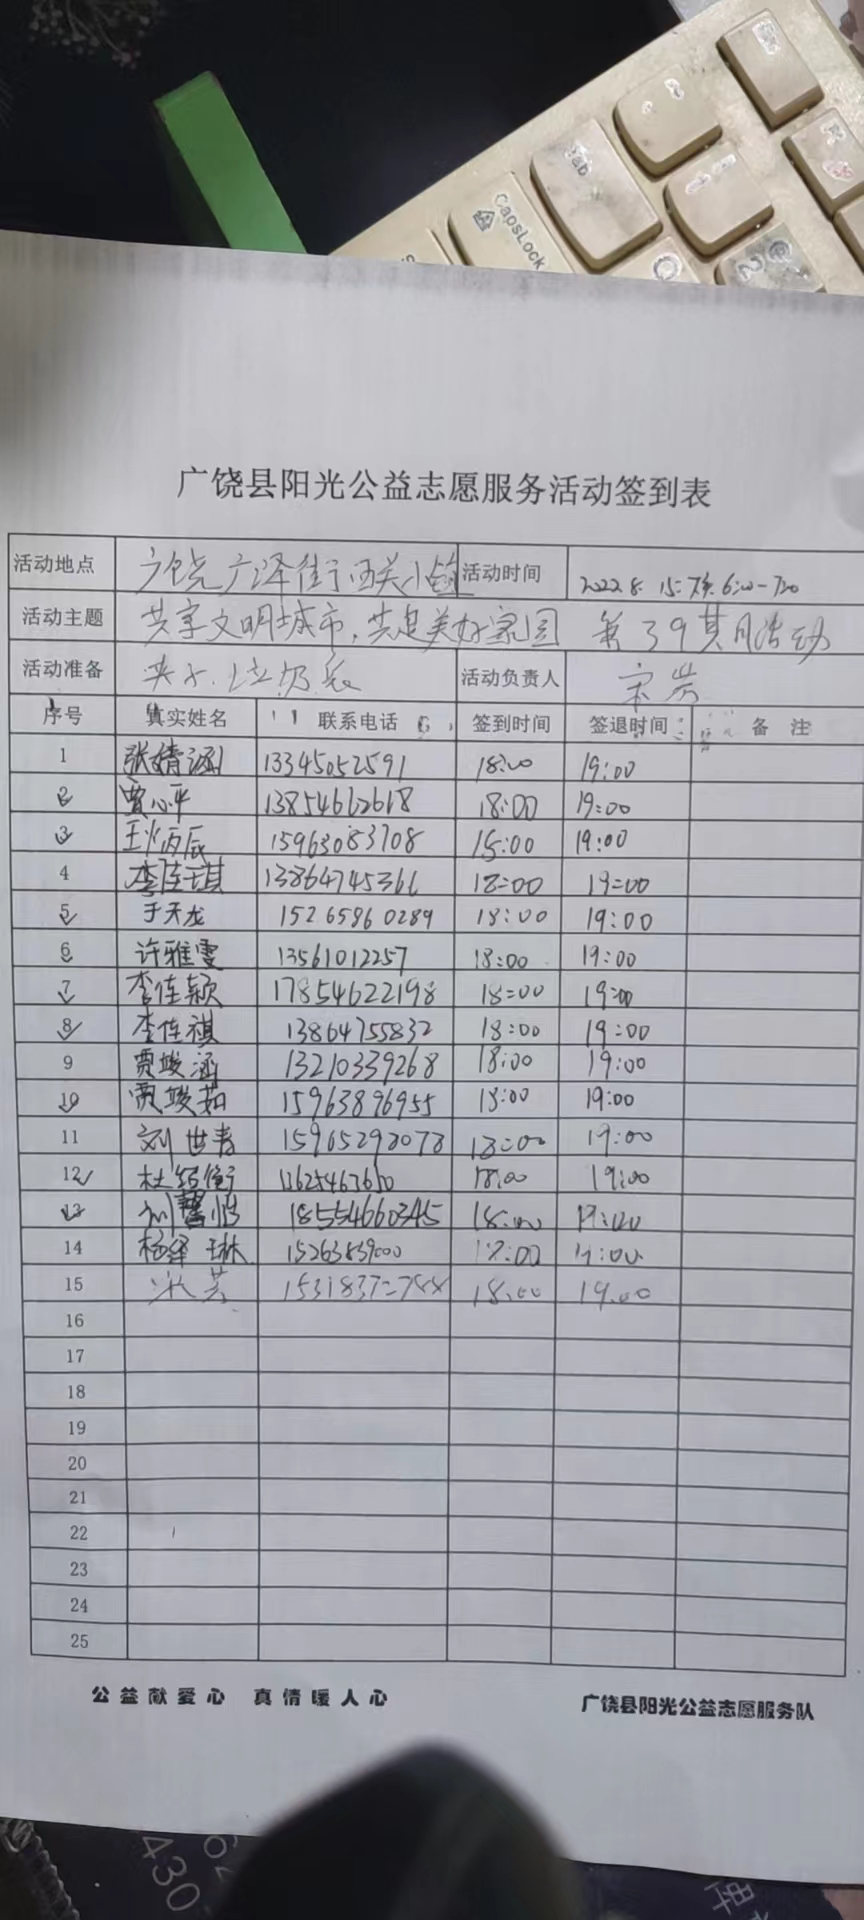 Tab
CapsLock
广饶县阳光公益志愿服务活动签到表
活动地点 广饶广泽街西关小镇 活动时间 2022.8.15. 6:00-7:00
活动主题 共享文明城市,共建美好家园 第39期月活动
活动准备 夹子、垃圾袋 活动负责人 宋芸
序号 真实姓名 联系电话 签到时间 签退时间 备注
1 张婧涵 13345052591 18:00 19:00
2 贾心平 13854662618 18:00 19:00
3 王炳辰 15963083708 15:00 19:00
4 李佳琪 13864745366 18:00 19:00
5 于天龙 15265860289 18:00 19:00
6 许雅雯 13561012257 18:00 19:00
7 李佳颖 17854622198 18:00 19:00
8 李佳祺 13864755832 18:00 19:00
9 贾竣涵 13210339268 18:00 19:00
10 贾竣茹 15963896955 18:00 19:00
11 刘世青 15965298078 18:00 19:00
12 杜 13625463650 18:00 19:00
13 刘馨怡 18554660345 18:00 19:00
14 杨泽琳 15263839000 18:00 19:00
15 宋芸 18:00 19:00
16
17
18
19
20
21
22
23
24
25
公益献爱心 真情暖人心
广饶县阳光公益志愿服务队
430